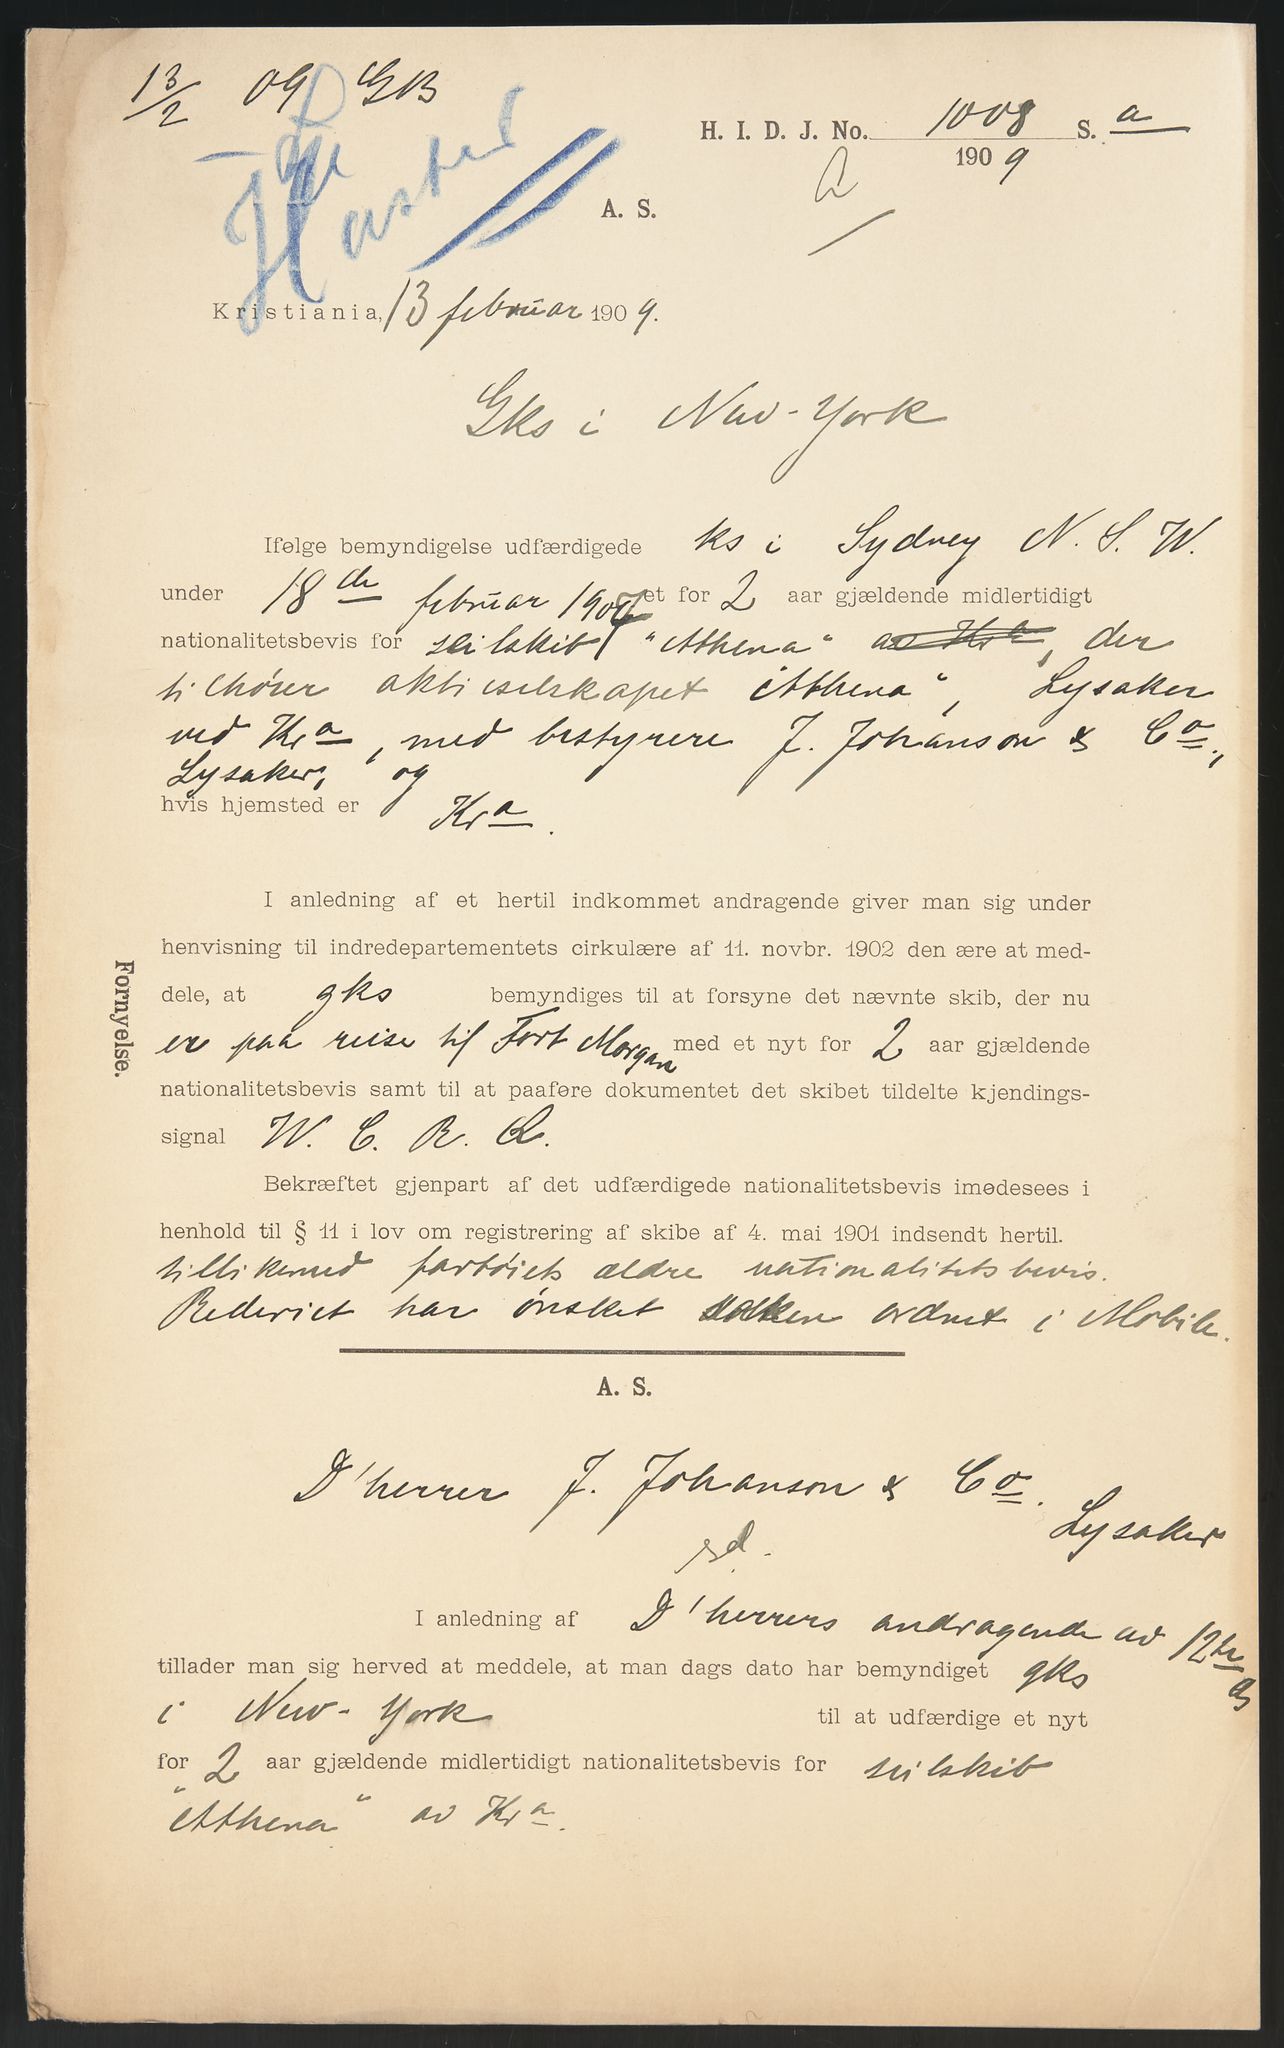 13/2 09 GB
Haster
H. I. D. J. No. 1008 S. a
1909
A. S.
Kristiania, 13 februar 1909.
Gks i New-York
Ifølge bemyndigelse udfærdigede ks i Sydney N. S. W.
under 18de februar 1907 et for 2 aar gjældende midlertidigt
nationalitetsbevis for seilskib "Athena" av Kra, der
tilhører aktieselskapet "Athena", Lysaker
ved Kra, med bestyrere J. Johanson & Co.,
Lysaker, og
hvis hjemsted er Kra.
I anledning af et hertil indkommet andragende giver man sig under
henvisning til indredepartementets cirkulære af 11. novbr. 1902 den ære at med-
dele, at gks bemyndiges til at forsyne det nævnte skib, der nu
er paa reise til Fort Morgan med et nyt for 2 aar gjældende
nationalitetsbevis samt til at paaføre dokumentet det skibet tildelte kjendings-
signal W. C. R. Q.
Bekræftet gjenpart af det udfærdigede nationalitetsbevis imødesees i
henhold til § 11 i lov om registrering af skibe af 4. mai 1901 indsendt hertil.
tillikemed fartøiets ældre nationalitetsbevis.
Rederiet har ønsket saken ordnet i Mobile.
Fornyelse.
A. S.
D'herrer J. Johanson & Co.
Lysaker
I anledning af D'herrers andragende av 12te ds
tillader man sig herved at meddele, at man dags dato har bemyndiget gks
i New-York til at udfærdige et nyt
for 2 aar gjældende midlertidigt nationalitetsbevis for seilskib
"Athena" av Kra.